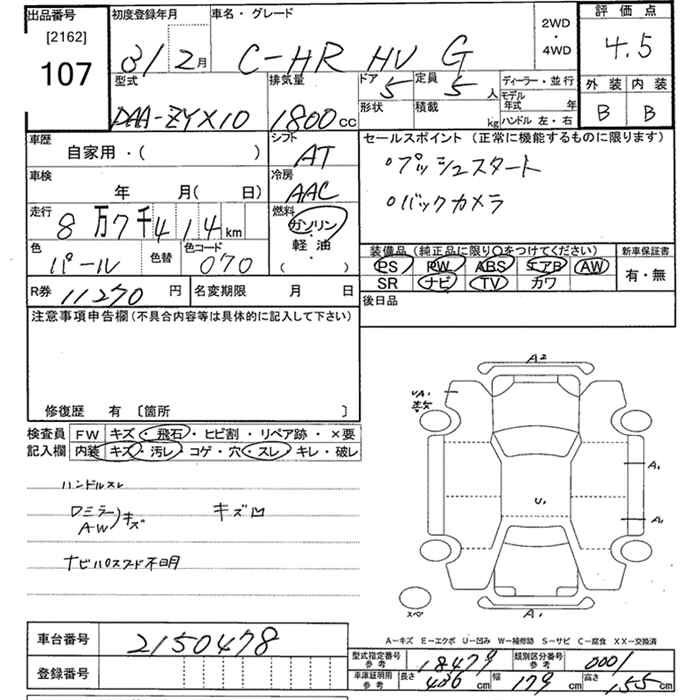 出品番号 初度登録年月 車名・グレード 2WD・4WD 評価点
[2162]
107 31/2月 C-HR HV G 4.5
型式 排気量 ドア 5 定員 5人 ディーラー・並行 外装 内装
モデル年式 年
DAA-ZYX10 1800cc 形状 積載 kg ハンドル 左・右 B B
車歴 シフト セールスポイント (正常に機能するものに限ります)
自家用・( ) AT ○プッシュスタート
車検 冷房
年 月(日) AAC ○バックカメラ
走行 燃料
8万7千414km ガソリン・軽油・( )
色 色替 色コード 装備品(純正品に限り○をつけてください) 新車保証書
パール 070 PS PW ABS エアB AW 有・無
R券 11270円 名変期限 月 日 SR ナビ TV カワ
注意事項申告欄(不具合内容等は具体的に記入して下さい) 後日品
修復歴 有 〔箇所 〕
検査員 FW キズ・飛石・ヒビ割・リペア跡・×要
記入欄 内装 キズ・汚レ・コゲ・穴・スレ・キレ・破レ
ハンドルスレ
ロミラー)キズ キズ凹
AW
ナビパスワード不明
A2
UA1
A1
U1
A1
A1
スペ
A-キズ E-エクボ U-凹み W-補修跡 S-サビ C-腐食 XX-交換済
車台番号 2150478
登録番号
型式指定番号 参考 18479 類別区分番号 参考 0001
車庫証明用 参考 長さ 436cm 幅 179cm 高さ 155cm